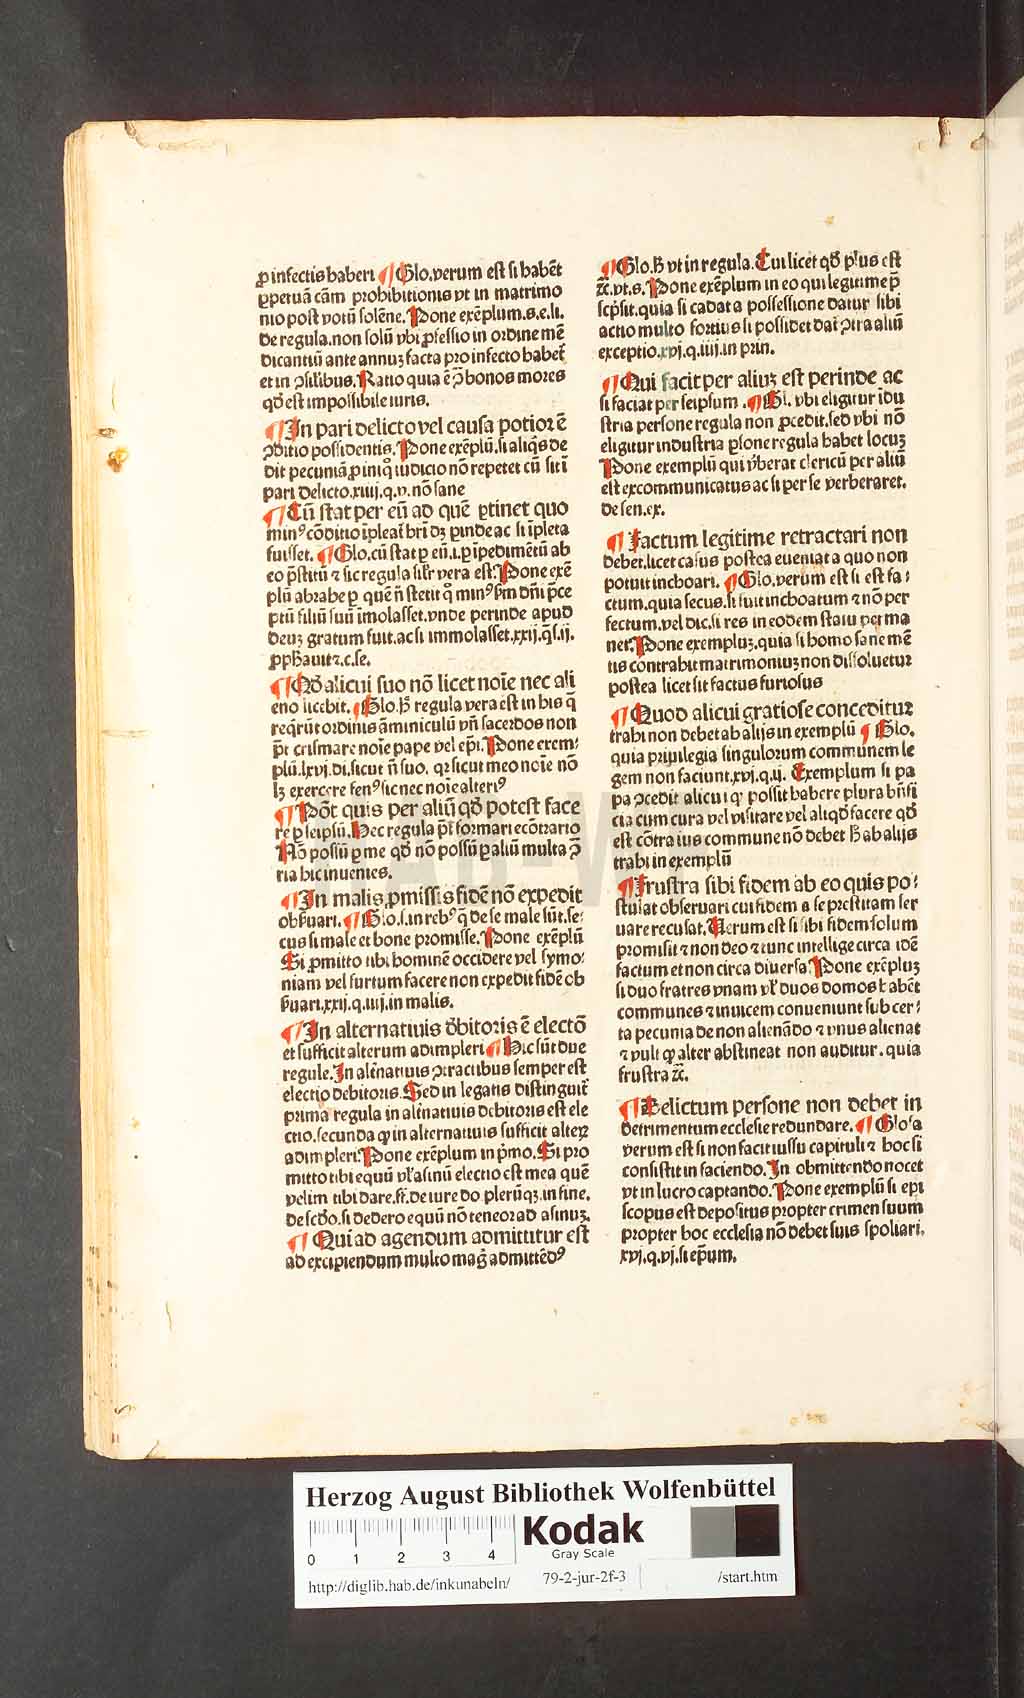 ꝓ infectis haberi ¶ Glo. verum est si habēt
ꝑpetuā cām prohibitionis vt in matrimo
nio post votū solēne. Pone exēplum. s. e. li.
de regula. non solū vbi ꝓfessio in ordine mē
dicantiū ante annuꝫ facta pro infecto habet̄
et in ꝯsilibus. Ratio quia ē ꝯ bonos mores
qđ est impossibile iuris.
¶ In pari delicto vel causa potior ē
ꝯditio possidentis. Pone exēplū. si aliq̄s de
dit pecuniā ꝓ iniq̊ iudicio nō repetet cū sit ī
pari delicto. xiiij. q. v. nō sane
¶ Cū stat per eū ad quē ꝑtinet quo
minꝰ cōditio īpleat̄ hr̄i dꝫ ꝑinde ac si īpleta
fuisset. ¶ Glo. cū stat ꝑ eū. i. ꝑ ipedimētū ab
eo p̄stitū ⁊ sic regula sil̄r vera est. Pone exē
plū abrahe ꝑ quē n̄ stetit q̄ minꝰ ẜm dn̄i p̄ce
ptū filiū suū īmolasset. vnde perinde apud
deuꝫ gratum fuit. ac si immolasset. xxij. q̄. ij.
¶ Qđ alicui suo nō licet noīe nec ali
eno licebit. ¶ Glo. h̄ regula vera est in his q̄
reqr̄ūt ordinis amminiculū vn̄ sacerdos non
p̄t crismare noīe pape vel ep̄i. Pone exem⸗
plū. lxvj. di. sicut n̄ suo. qꝛ sicut meo noīe nō
lꝫ exercere senꝰ sic nec noīe alteriꝰ
¶ Pōt quis per aliū qđ potest face
re ꝑ seipsū. Hec regula p̄t formari ecōtrario
Nō possū ꝑ me qđ nō possū ꝑ aliū multa ꝯ̄
ria hic inuenies.
¶ In malis ꝓmissis fidē nō expedit
obẜuari. ¶ Glo. s. in rebꝰ q̄ de se male sūt. se⸗
cus si male et bone promisse. Pone exēplū
Si ꝓmitto tibi hominē occidere vel symo⸗
niam vel furtum facere non expedit fidē ob
ẜuari. xxij. q. iiij. in malis.
¶ In alternatiuis đbitoris ē electō
et sufficit alterum adimpleri ¶ Hic sūt due
regule. In alr̄natiuis ꝯtractibus semper est
electio debitoris. Sed in legatis distinguit̄
prima regula in alr̄natiuis debitoris est ele
ctio. secunda ꝙ in alternatiuis sufficit alteꝝ
adimpleri. Pone exēplum in p̄mo. Si pro
mitto tibi equū vl̓ asinū electio est mea quē
velim tibi dare. ff. de iure do. plerūqꝫ. in fine.
de sc̄do. si dedero equū nō teneor ad asinuꝫ.
¶ Qui ad agendum admittitur est
ad excipiendum multo mag̃ admittēdꝰ
¶ Glo. h̄ vt in regula. Cui licet qđ plus est
⁊c̄. vt. s. Pone exēplum in eo qui legitime p̄
scp̄sit. quia si cadat a possessione datur sibi
actio multo fortius si possidet dat̄ ꝯtra aliū
exceptio. xvj. q. iiij. in prin.
¶ Qui facit per aliuꝫ est perinde ac
si faciat per seipsum. ¶ Gl. vbi eligitur idu
stria persone regula non ꝓcedit. sed vbi nō
eligitur industria ꝑsone regula habet locuꝫ
Pone exemplū qui v̓berat clericū per aliū
est excommunicatus ac si per se verberaret.
de sen. ex.
¶ Factum legitime retractari non
debet. licet casus postea eueniat a quo non
potuit inchoari. ¶ Glo. verum est si est fa⸗
ctum. quia secus. si fuit inchoatum ⁊ nō per
fectum. vel dic. si res in eodem statu perma
net. Pone exempluꝫ. quia si homo sane mē
tis contrahit matrimoniuꝫ non dissoluetur
postea licet sit factus furiosus
¶ Quod alicui gratiose conceditur
trahi non debet ab alijs in exemplū ¶ Glo.
quia priuilegia singulorum communem le
gem non faciunt. xvj. q. ij. Exemplum si pa
pa ꝯcedit alicui qꝙ possit habere plura bn̄fi
cia cum cura vel visitare vel aliqđ facere qđ
est cōtra ius commune nō debet h̄ ab alijs
trahi in exemplū
¶ Frustra sibi fidem ab eo quis po⸗
stulat obseruari cui fidem a se prestitam ser
uare recusat. Verum est si sibi fidem solum
promisit ⁊ non deo ⁊ tunc intellige circa idē
factum et non circa diuersa. Pone exēpluꝫ
si duo fratres vnam vl̓ duos domos habēt
communes ⁊ inuicem conueniunt sub cer⸗
ta pecunia de non alienādo ⁊ vnus alienat
⁊ vult ꝙ alter abstineat non auditur. quia
frustra ⁊c̄.
¶ Delictum persone non debet in
detrimentum ecclesie redundare. ¶ Glosa
verum est si non facit iussu capituli ⁊ hoc si
consistit in faciendo. In obmittendo nocet
vt in lucro captando. Pone exemplū si epi
scopus est depositus propter crimen suum
propter hoc ecclesia nō debet suis spoliari.
xvj. q. vj. si ep̄um.
HAB-WF
Herzog August Bibliothek Wolfenbüttel
0 1 2 3 4
Kodak
Gray Scale
http://diglib.hab.de/inkunabeln/ 79-2-jur-2f-3 /start.htm